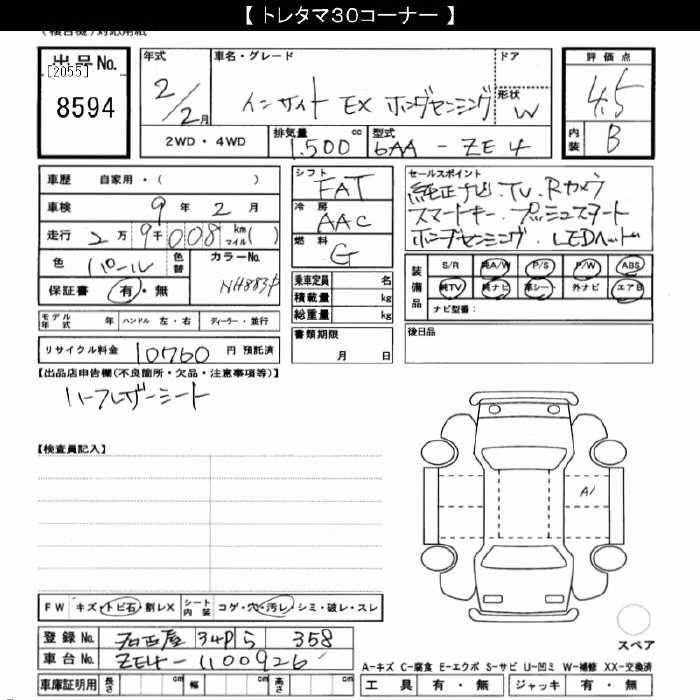 【 トレタマ30コーナー 】
出品No.
[2055]
8594
年式
2/2月
車名・グレード
インサイト EX ホンダセンシング
ドア
形状
W
2WD・4WD
排気量 cc
1.500
型式
6AA - ZE4
評価点
4.5
内装
B
車歴 自家用・( )
車検 9年 2月
走行 2万 9千 008 km マイル( )
色 パール
色替
カラーNo.
NH883P
保証書 有・無
シフト
FAT
冷房
AAC
燃料
G
乗車定員 名
積載量 kg
総重量 kg
セールスポイント
純正ナビ.TV.Rカメラ
スマートキー.プッシュスタート
ホンダセンシング.LEDヘッド
装備品
S/R 純A/W P/S P/W ABS
純TV 純ナビ 革シート 外ナビ エアB
ナビ型番:
モデル年式 年 ハンドル 左・右 ディーラー・並行
リサイクル料金 10760 円 預託済
書類期限
月 日
後日品
【出品店申告欄(不良箇所・欠品・注意事項等)】
ハーフレザーシート
【検査員記入】
A1
FW キズ・トビ石・割レX シート内装 コゲ・穴・汚レ・シミ・破レ・スレ
登録No. 名古屋 34P ら 358
車台No. ZE4-1100926
車庫証明用 長さ cm 幅 cm 高さ cm
スペア
A-キズ C-腐食 E-エクボ S-サビ U-凹ミ W-補修 XX-交換済
工具 有・無 ジャッキ 有・無